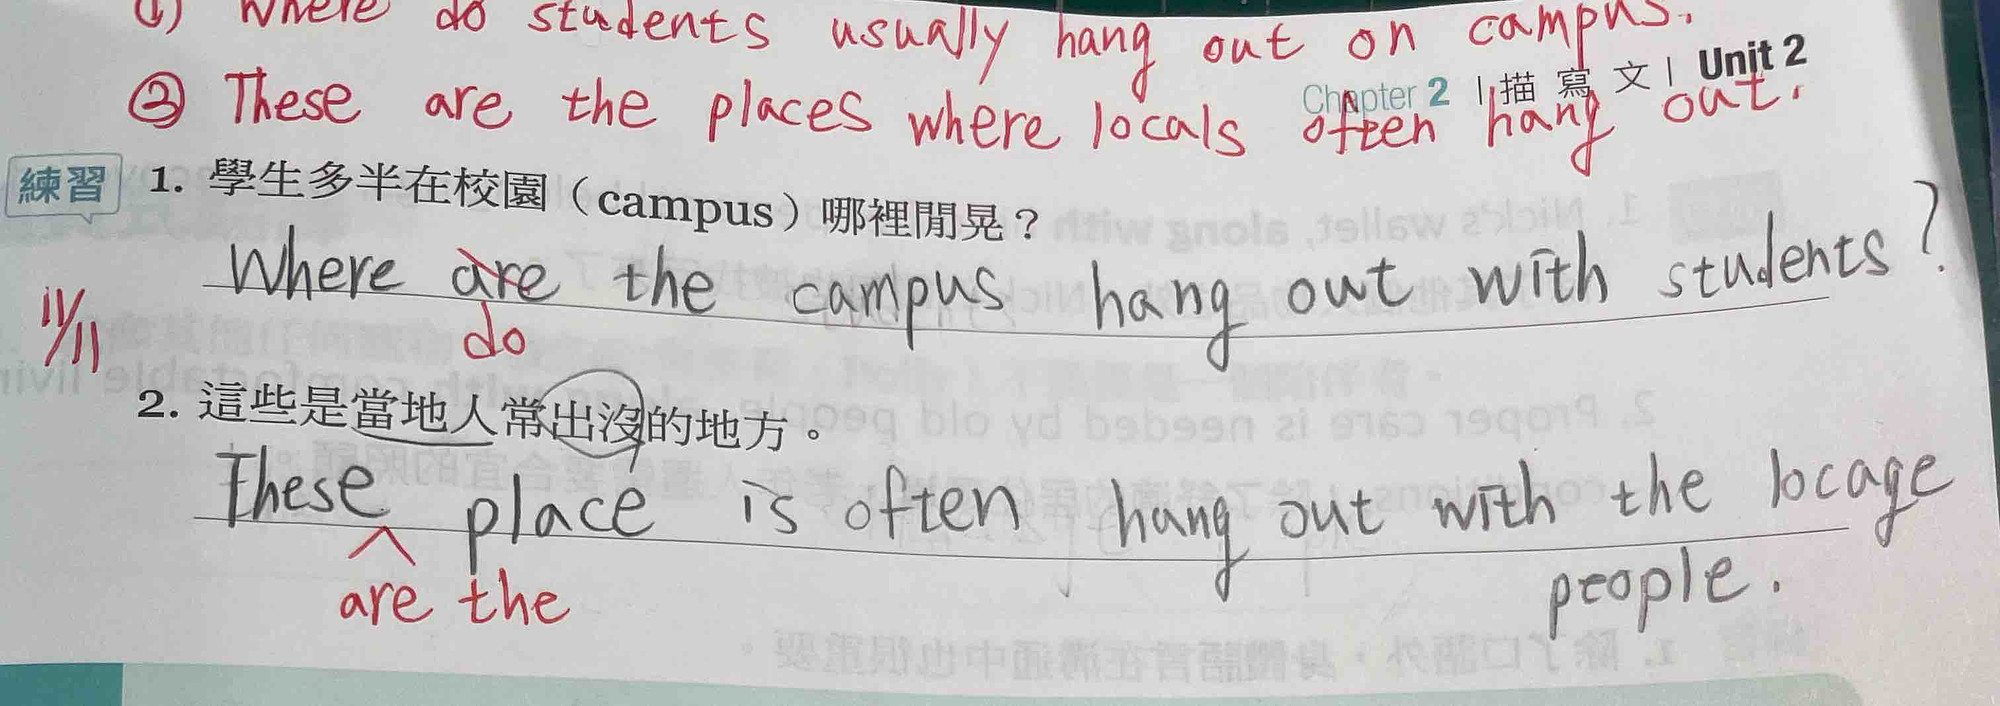 (1) Where do students usually hang out on campus.
② These are the places where locals often hang out.
Chapter 2 | 描寫文 | Unit 2
練習 1. 學生多半在校園（campus）哪裡閒晃？
Where are the campus hang out with students?
do
11/11
2. 這些是當地人常出沒的地方。
These place is often hang out with the locage
people.
are the